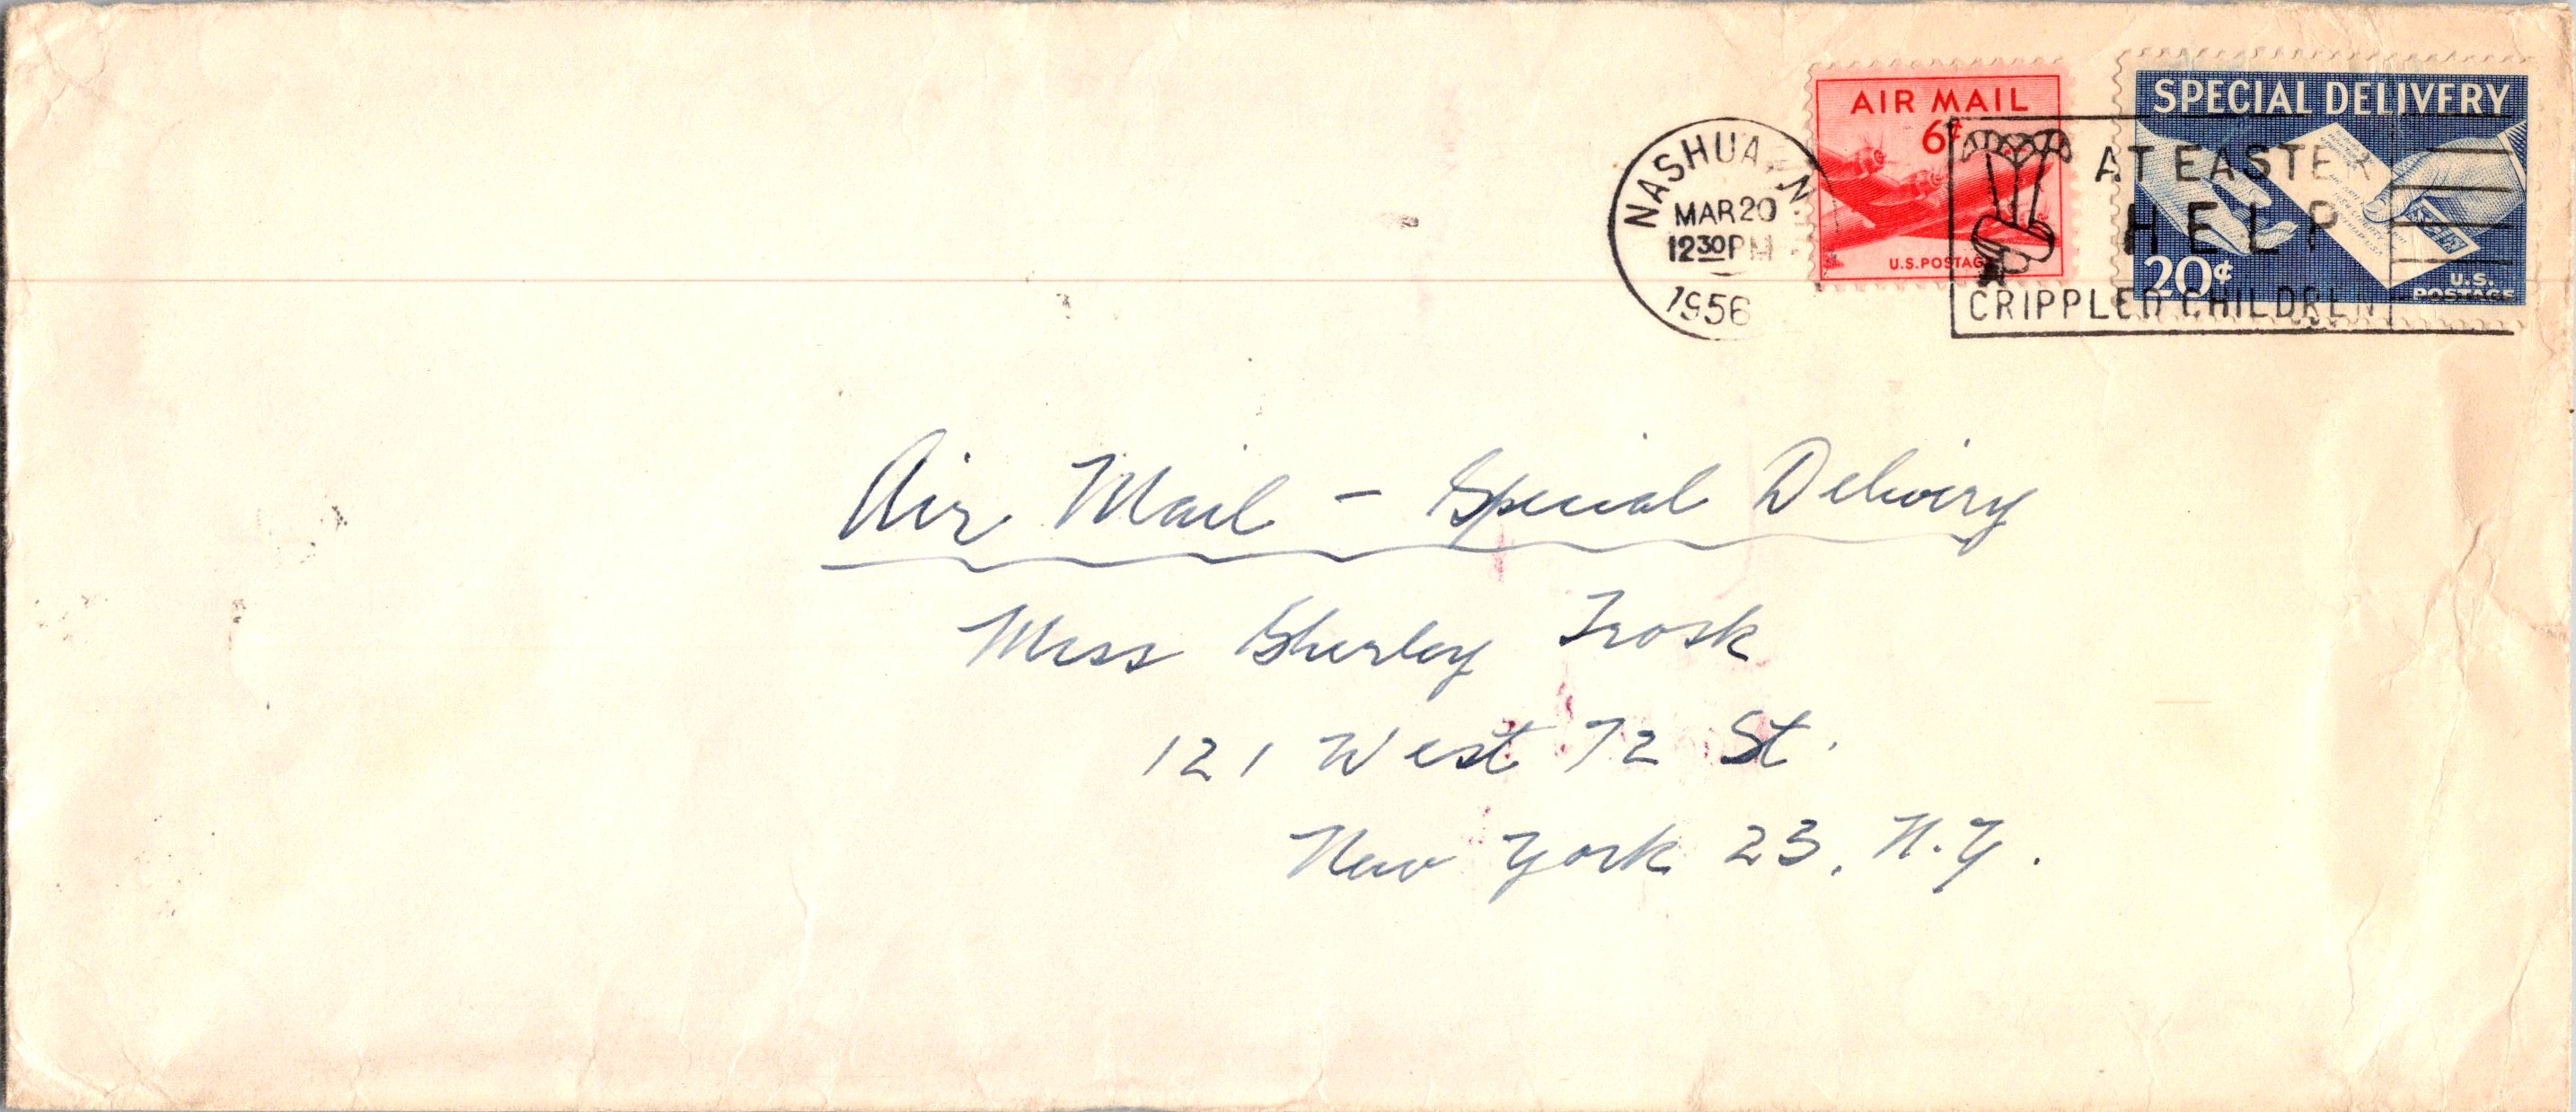 AIR MAIL
6¢
U.S. POSTAGE
SPECIAL DELIVERY
20¢
U.S.
POSTAGE
NASHUA, N.
MAR 20
12 30 PM
1956
AT EASTER
HELP
CRIPPLED CHILDREN
Air Mail - Special Delivery
Miss Sherley Trosk
121 West 72 St.
New York 23, N.Y.